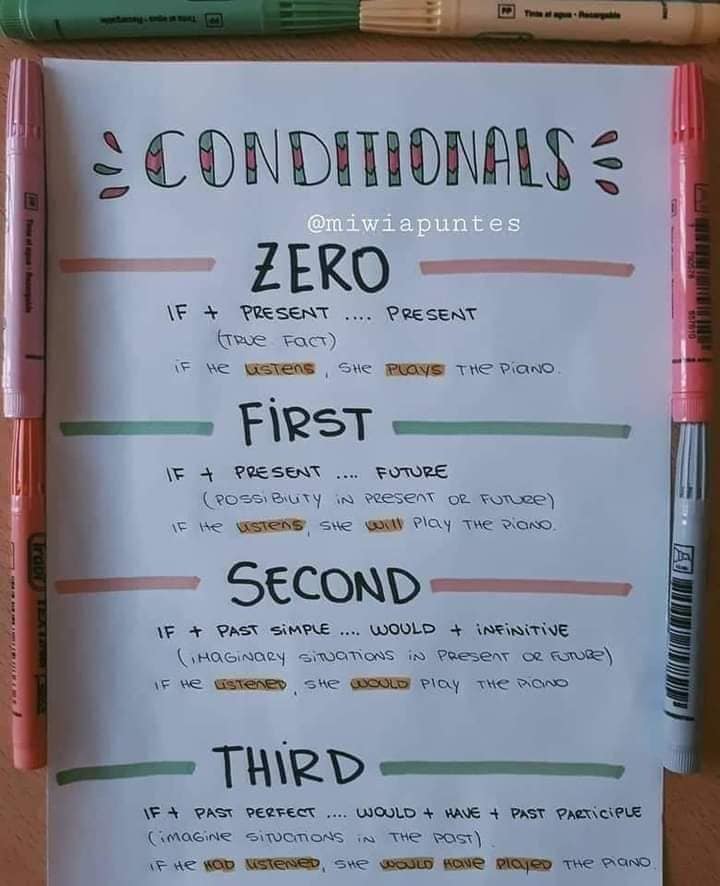 Tinta al agua - Recargable
Tinta al agua - Recargable
CONDITIONALS
@miwiapuntes
ZERO
IF + PRESENT .... PRESENT
(TRUE FACT)
IF HE LISTENS, SHE PLAYS THE PIANO.
FIRST
IF + PRESENT .... FUTURE
(POSSIBILITY IN PRESENT OR FUTURE)
IF HE LISTENS, SHE WILL PLAY THE PIANO.
SECOND
IF + PAST SIMPLE .... WOULD + INFINITIVE
(IMAGINARY SITUATIONS IN PRESENT OR FUTURE)
IF HE LISTENED, SHE WOULD PLAY THE PIANO
THIRD
IF + PAST PERFECT .... WOULD + HAVE + PAST PARTICIPLE
(IMAGINE SITUATIONS IN THE PAST)
IF HE HAD LISTENED, SHE WOULD HAVE PLAYED THE PIANO